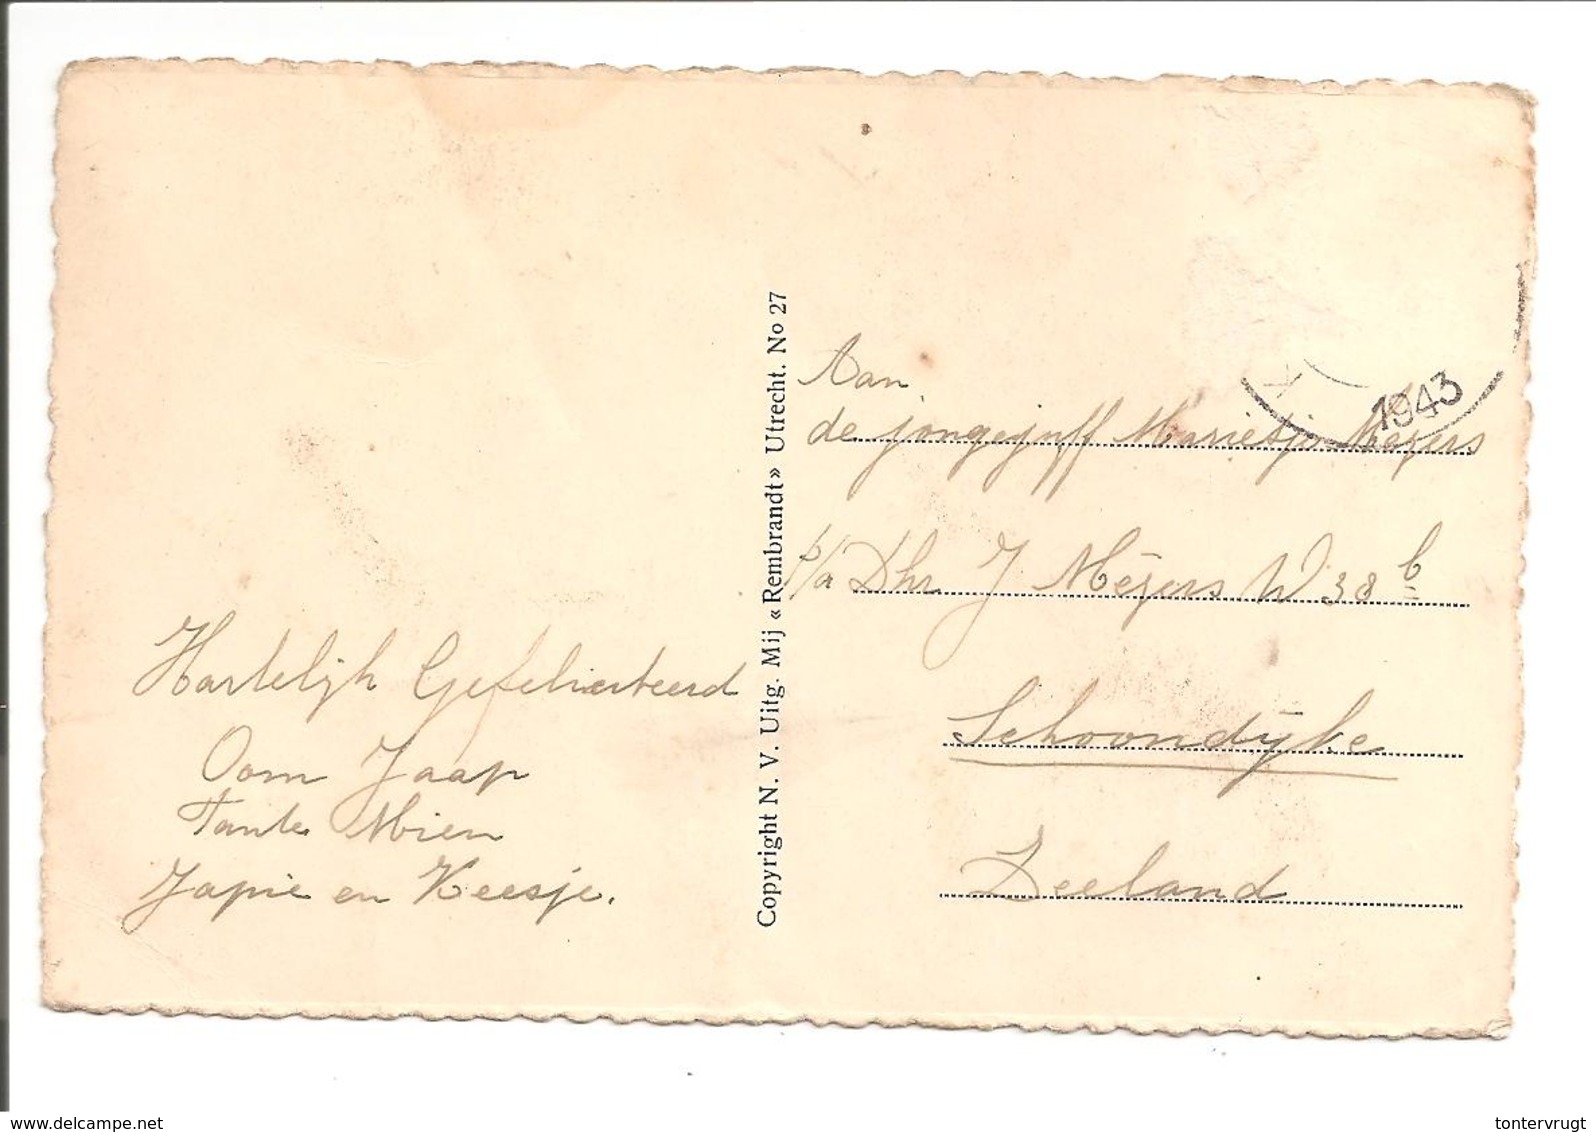 Hartelijk Gefelieteerd
Oom Jaap
Tante Mien
Japie en Keesje.
Copyright N. V. Uitg. Mij «Rembrandt» Utrecht. No 27
1943
Aan
de jongejuff Marietje Mejers
p/a Dhr J Mejers W 38 b
Schoondijke
Zeeland
www.delcampe.net
tontervrugt